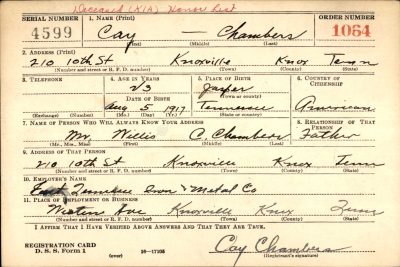 Deceased (KIA) Honor List
SERIAL NUMBER 1. NAME (Print) ORDER NUMBER
4599 Cay — Chambers 1054
(First) (Middle) (Last)
2. ADDRESS (Print)
210 10th St Knoxville Knox Tenn
(Number and street or R. F. D. number) (Town) (County) (State)
3. TELEPHONE 4. AGE IN YEARS 5. PLACE OF BIRTH 6. COUNTRY OF CITIZENSHIP
23 Jasper
DATE OF BIRTH (Town or county)
Aug 5 1917 Tennessee American
(Exchange) (Number) (Mo.) (Day) (Yr.) (State or country)
7. NAME OF PERSON WHO WILL ALWAYS KNOW YOUR ADDRESS 8. RELATIONSHIP OF THAT PERSON
Mr. Willis C. Chambers Father
(Mr., Mrs., Miss) (First) (Middle) (Last)
9. ADDRESS OF THAT PERSON
210 10th St Knoxville Knox Tenn
(Number and street or R. F. D. number) (Town) (County) (State)
10. EMPLOYER'S NAME
East Tennessee Iron & Metal Co
11. PLACE OF EMPLOYMENT OR BUSINESS
Western Ave Knoxville Knox Tenn
(Number and street or R. F. D. number) (Town) (County) (State)
I AFFIRM THAT I HAVE VERIFIED ABOVE ANSWERS AND THAT THEY ARE TRUE.
REGISTRATION CARD
D. S. S. Form 1 (over) 16—17105 Cay Chambers
(Registrant's signature)